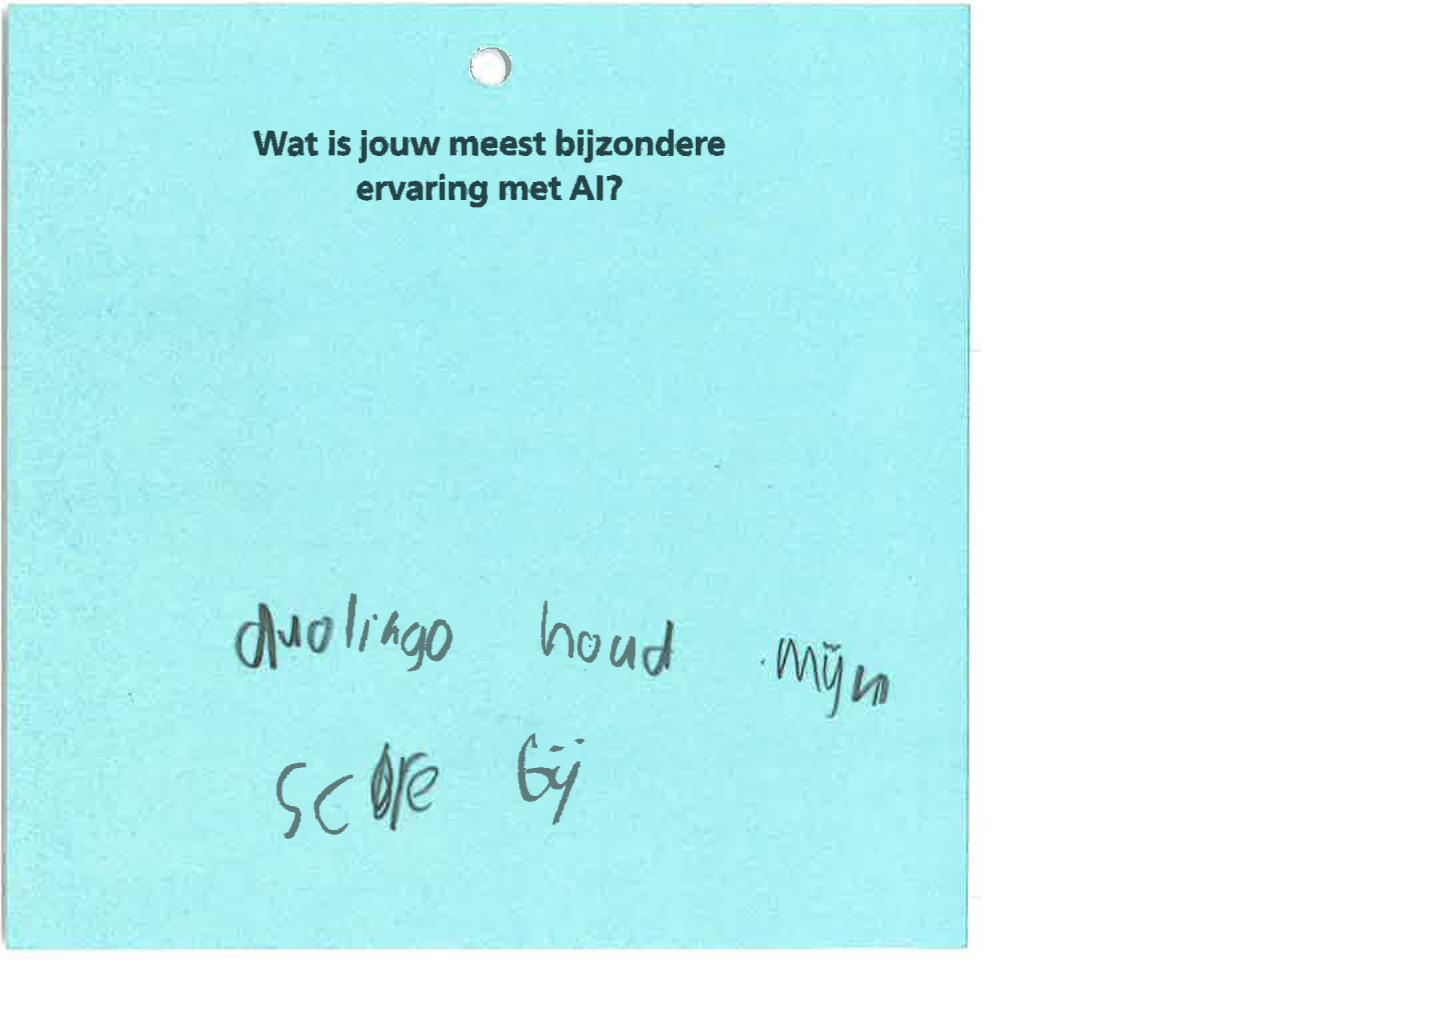 Wat is jouw meest bijzondere
ervaring met AI?
duolingo houd mijn
score bij